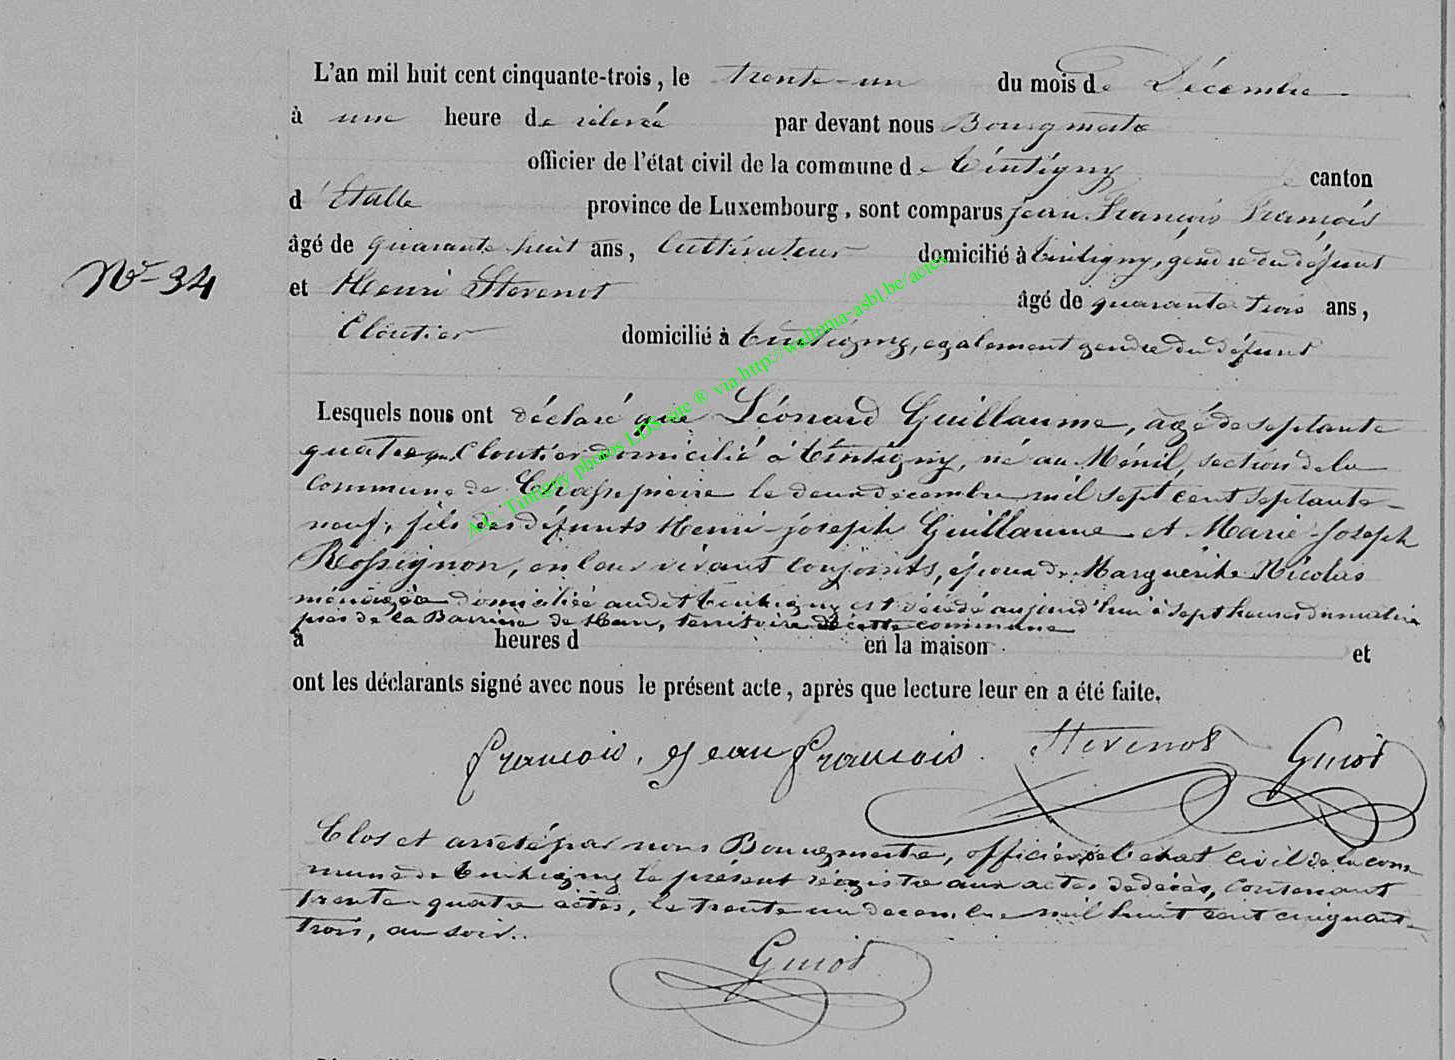 L'an mil huit cent cinquante-trois, le trente-un du mois de Décembre
à une heure de relevée par devant nous Bourgmestre
officier de l'état civil de la commune de Tintigny canton
d'Étalle province de Luxembourg, sont comparus Jean François François
âgé de quarante huit ans, Cultivateur domicilié à Tintigny, gendre du défunt
N° 34
et Henri Stevenot âgé de quarante trois ans,
Cloutier domicilié à Tintigny, egalement gendre du défunt
Lesquels nous ont déclaré que Léonard Guillaume, âgé de septante
quatre ans, Cloutier domicilié à Tintigny, né au Ménil, section de la
Commune de Chassepierre le deux decembre mil sept cent septante
neuf, fils des défunts Henri-joseph Guillaume et Marie-Joseph
Rossignon, en leur vivant conjoints, époux de Marguerite Nicolas
ménagère domiciliée audit Tintigny est décédé aujourd'hui à sept heures du matin
près de la Barrière de Han, territoire de cette commune
à heures d en la maison et
ont les déclarants signé avec nous le présent acte, après que lecture leur en a été faite.
francois, Jean francois. Stevenot Guiot
Clos et arrêté par nous Bourgmestre, officier de l'etat civil de la com-
mune de Tintigny le présent régistre aux actes de décès, contenant
trente-quatre actes, le trente un decembre mil huit cent cinquante-
trois, au soir.
Guiot
A.C. Tintigny photos LDScate ® via http://wallonia-asbl.be/actes